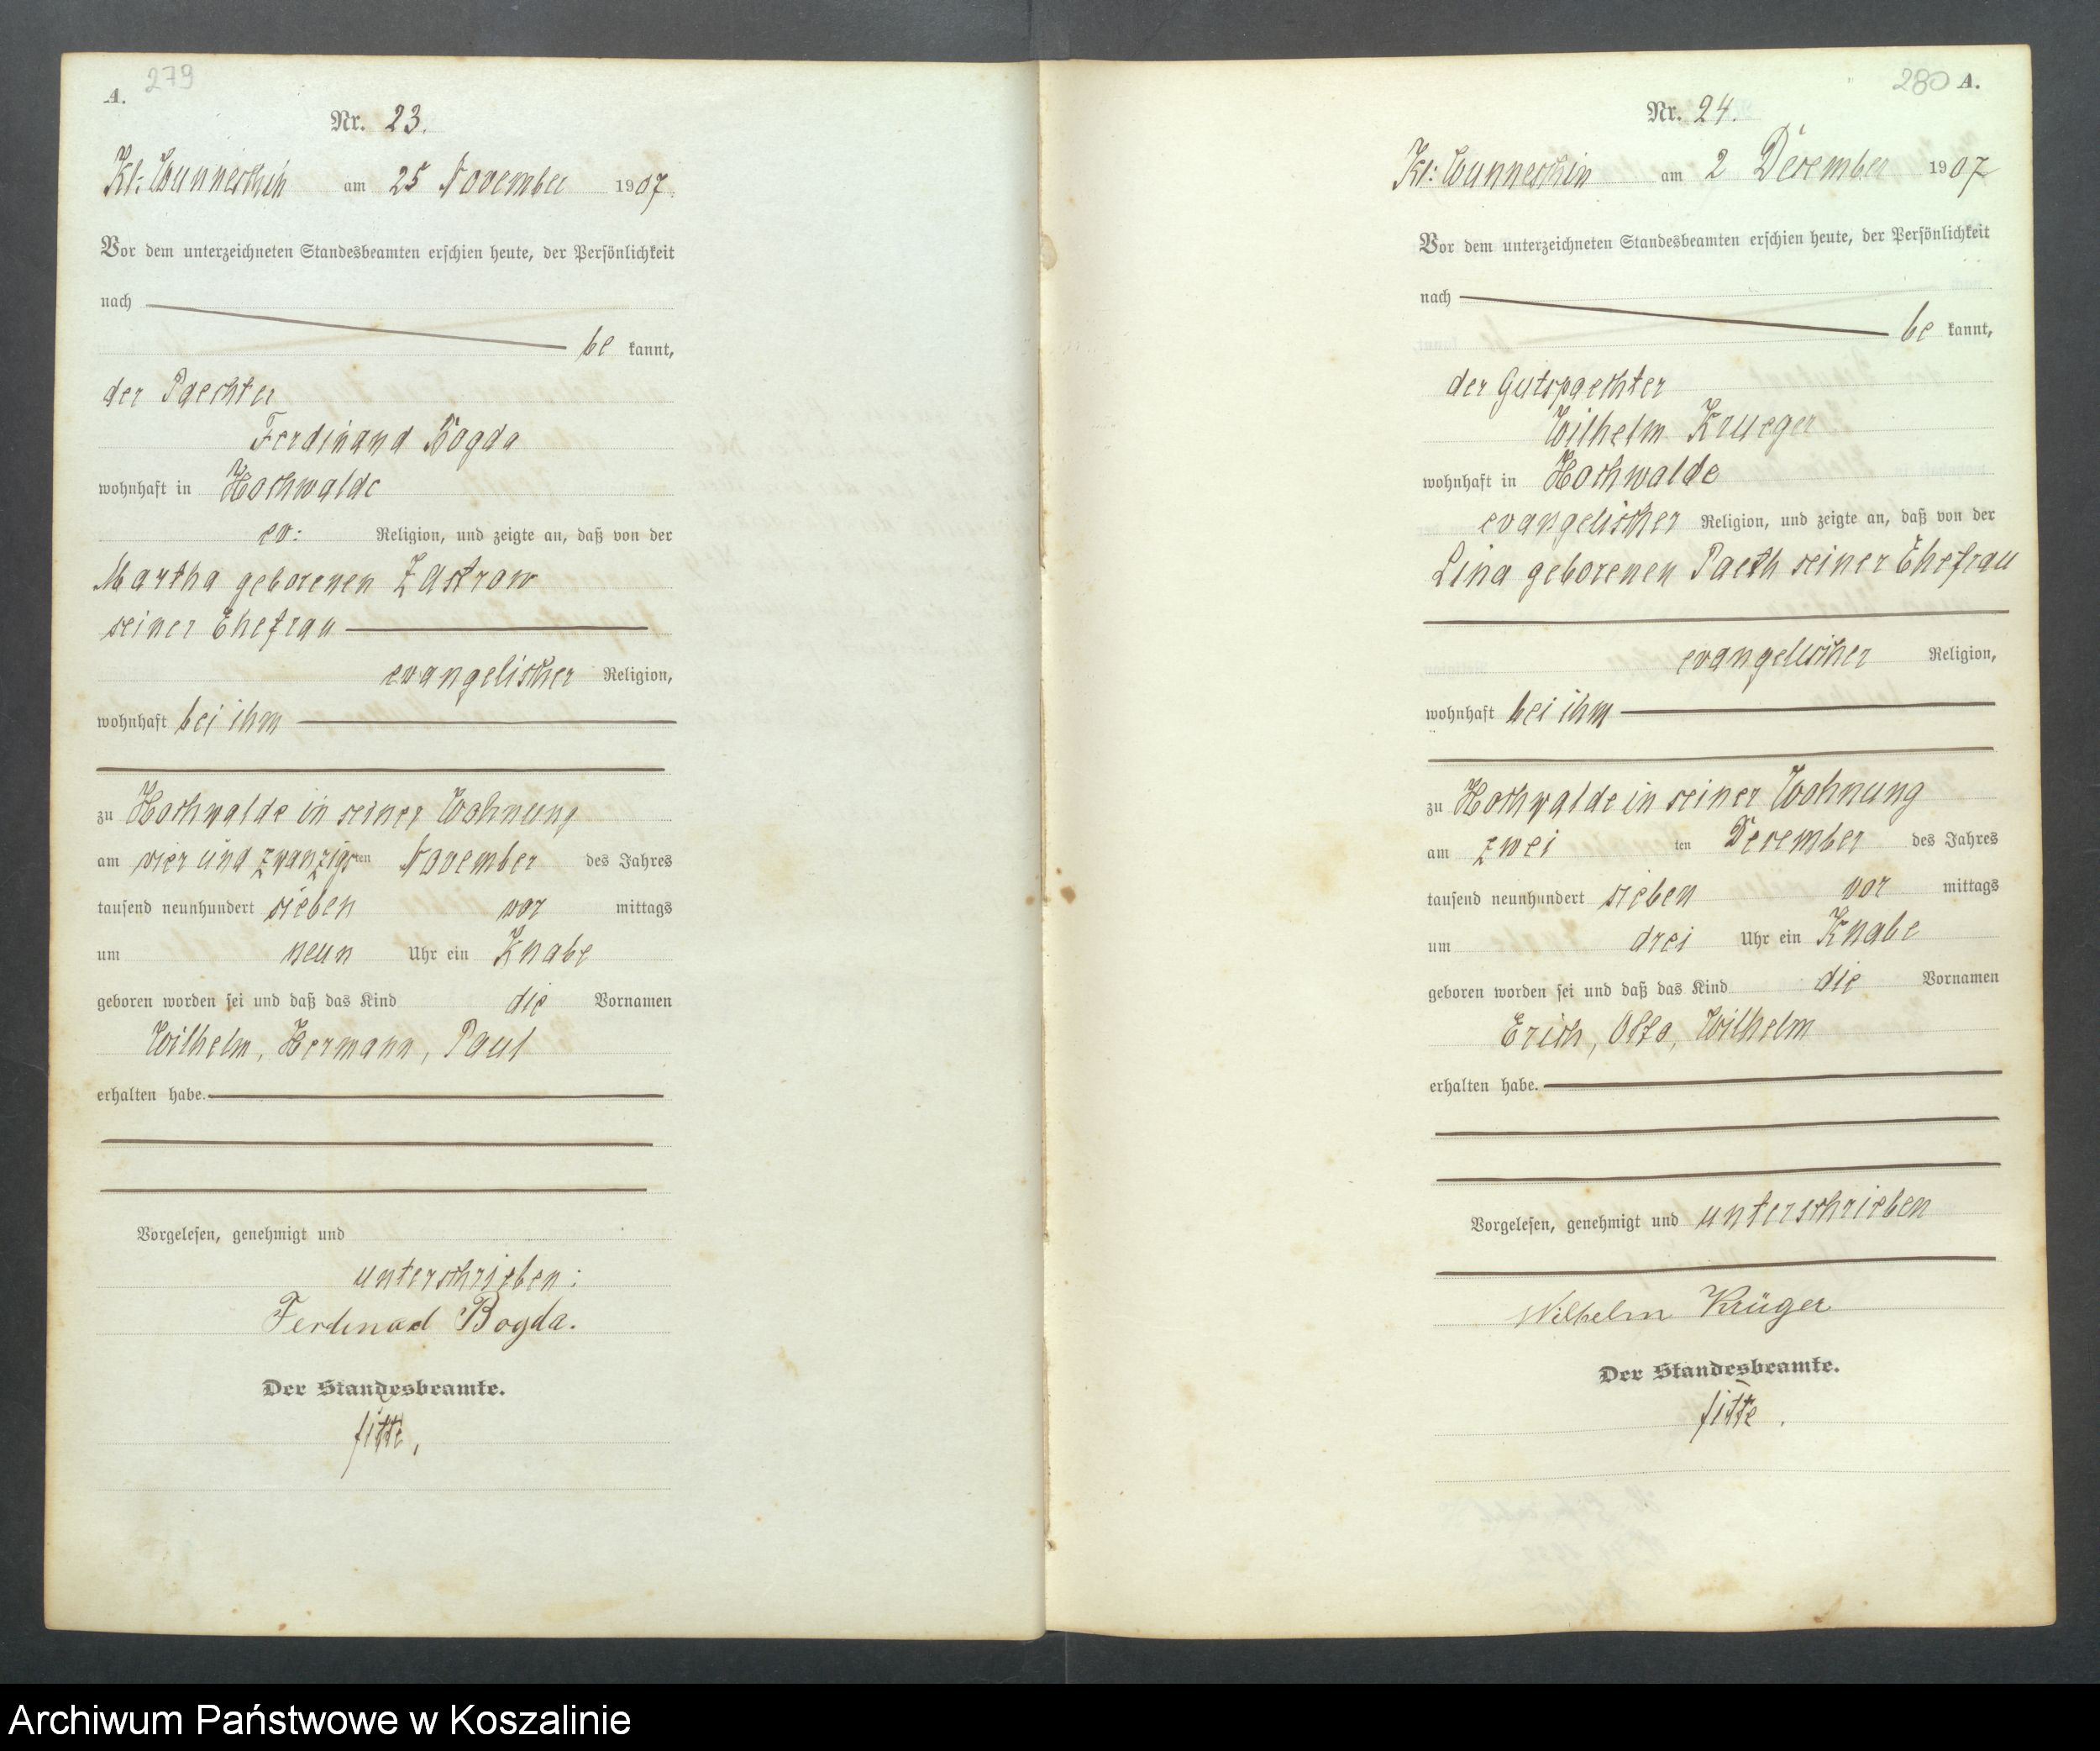 279
A.
Nr. 23.
Kl: Wunneschin am 25 November 1907.
Vor dem unterzeichneten Standesbeamten erschien heute, der Persönlichkeit
nach
be kannt,
der Paechter
Ferdinand Bogda
wohnhaft in Hochwalde
ev: Religion, und zeigte an, daß von der
Martha geborenen Zastrow
seiner Ehefrau
evangelischer Religion,
wohnhaft bei ihm
zu Hochwalde in seiner Wohnung
am vier und zwanzigsten November des Jahres
tausend neunhundert sieben vor mittags
um neun Uhr ein Knabe
geboren worden sei und daß das Kind die Vornamen
Wilhelm, Hermann, Paul
erhalten habe.
Vorgelesen, genehmigt und
unterschrieben:
Ferdinad Bogda.
Der Standesbeamte.
280 A.
Nr. 24.
Kl: Wunneschin am 2 December 1907
Vor dem unterzeichneten Standesbeamten erschien heute, der Persönlichkeit
nach
be kannt,
der Gutspaechter
Wilhelm Krueger
wohnhaft in Hochwalde
evangelischer Religion, und zeigte an, daß von der
Lina geborenen Paeth seiner Ehefrau
evangelischer Religion,
wohnhaft bei ihm
zu Hochwalde in seiner Wohnung
am zwei ten December des Jahres
tausend neunhundert sieben vor mittags
um drei Uhr ein Knabe
geboren worden sei und daß das Kind die Vornamen
Erich, Otto, Wilhelm
erhalten habe.
Vorgelesen, genehmigt und unterschrieben
Wilhelm Krüger
Der Standesbeamte.
Archiwum Państwowe w Koszalinie